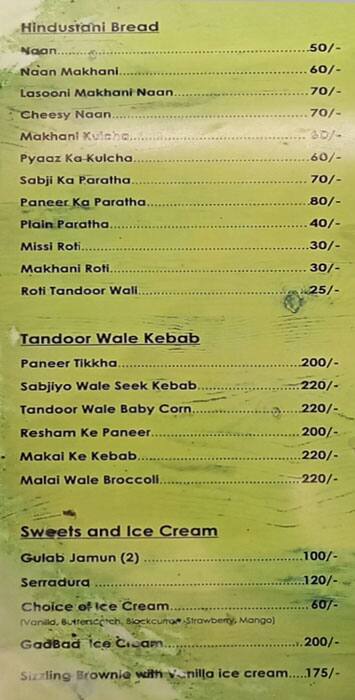 Hindustani Bread
Naan....................50/-
Naan Makhani....................60/-
Lasooni Makhani Naan....................70/-
Cheesy Naan....................70/-
Makhani Kulcha....................60/-
Pyaaz Ka Kulcha....................60/-
Sabji Ka Paratha....................70/-
Paneer Ka Paratha....................80/-
Plain Paratha....................40/-
Missi Roti....................30/-
Makhani Roti....................30/-
Roti Tandoor Wali....................25/-
Tandoor Wale Kebab
Paneer Tikkha....................200/-
Sabjiyo Wale Seek Kebab....................220/-
Tandoor Wale Baby Corn....................220/-
Resham Ke Paneer....................200/-
Makai Ke Kebab....................220/-
Malai Wale Broccoli....................220/-
Sweets and Ice Cream
Gulab Jamun (2) ....................100/-
Serradura ....................120/-
Choice of Ice Cream....................60/-
(Vanilla, Butterscotch, Blackcurrant, Strawberry, Mango)
GadBad Ice Cream....................200/-
Sizzling Brownie with Vanilla ice cream.....175/-